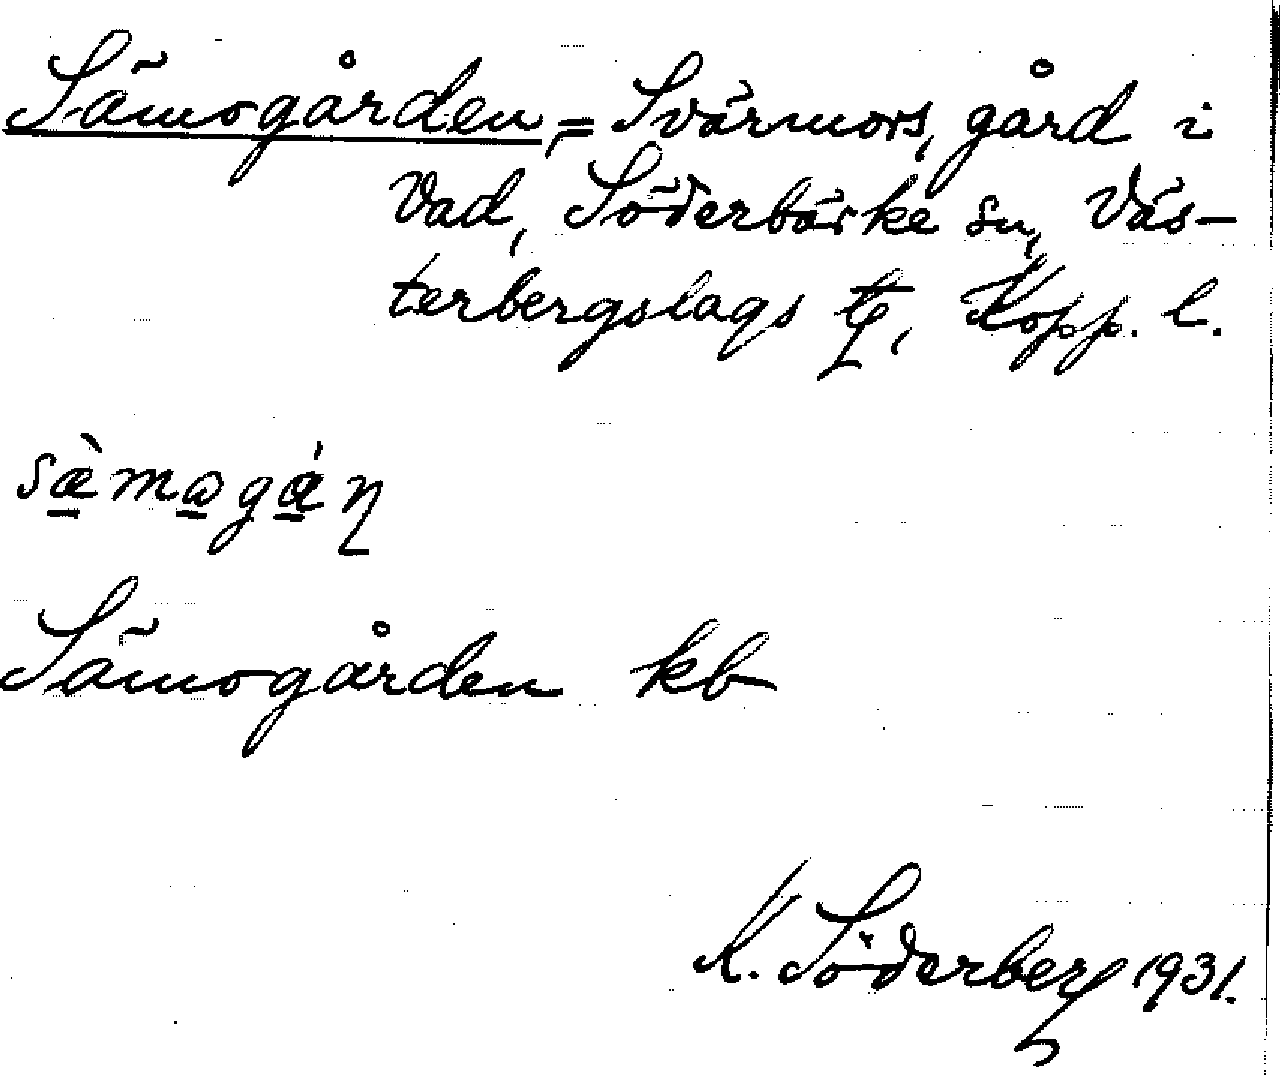 Sämogården, = Svärmors, gård i
Vad, Söderbärke sn, Väs-
terbergslags tg, Kopp. l.
sæ̀mωgǽn
Sämogården kb
K. Söderberg 1931.